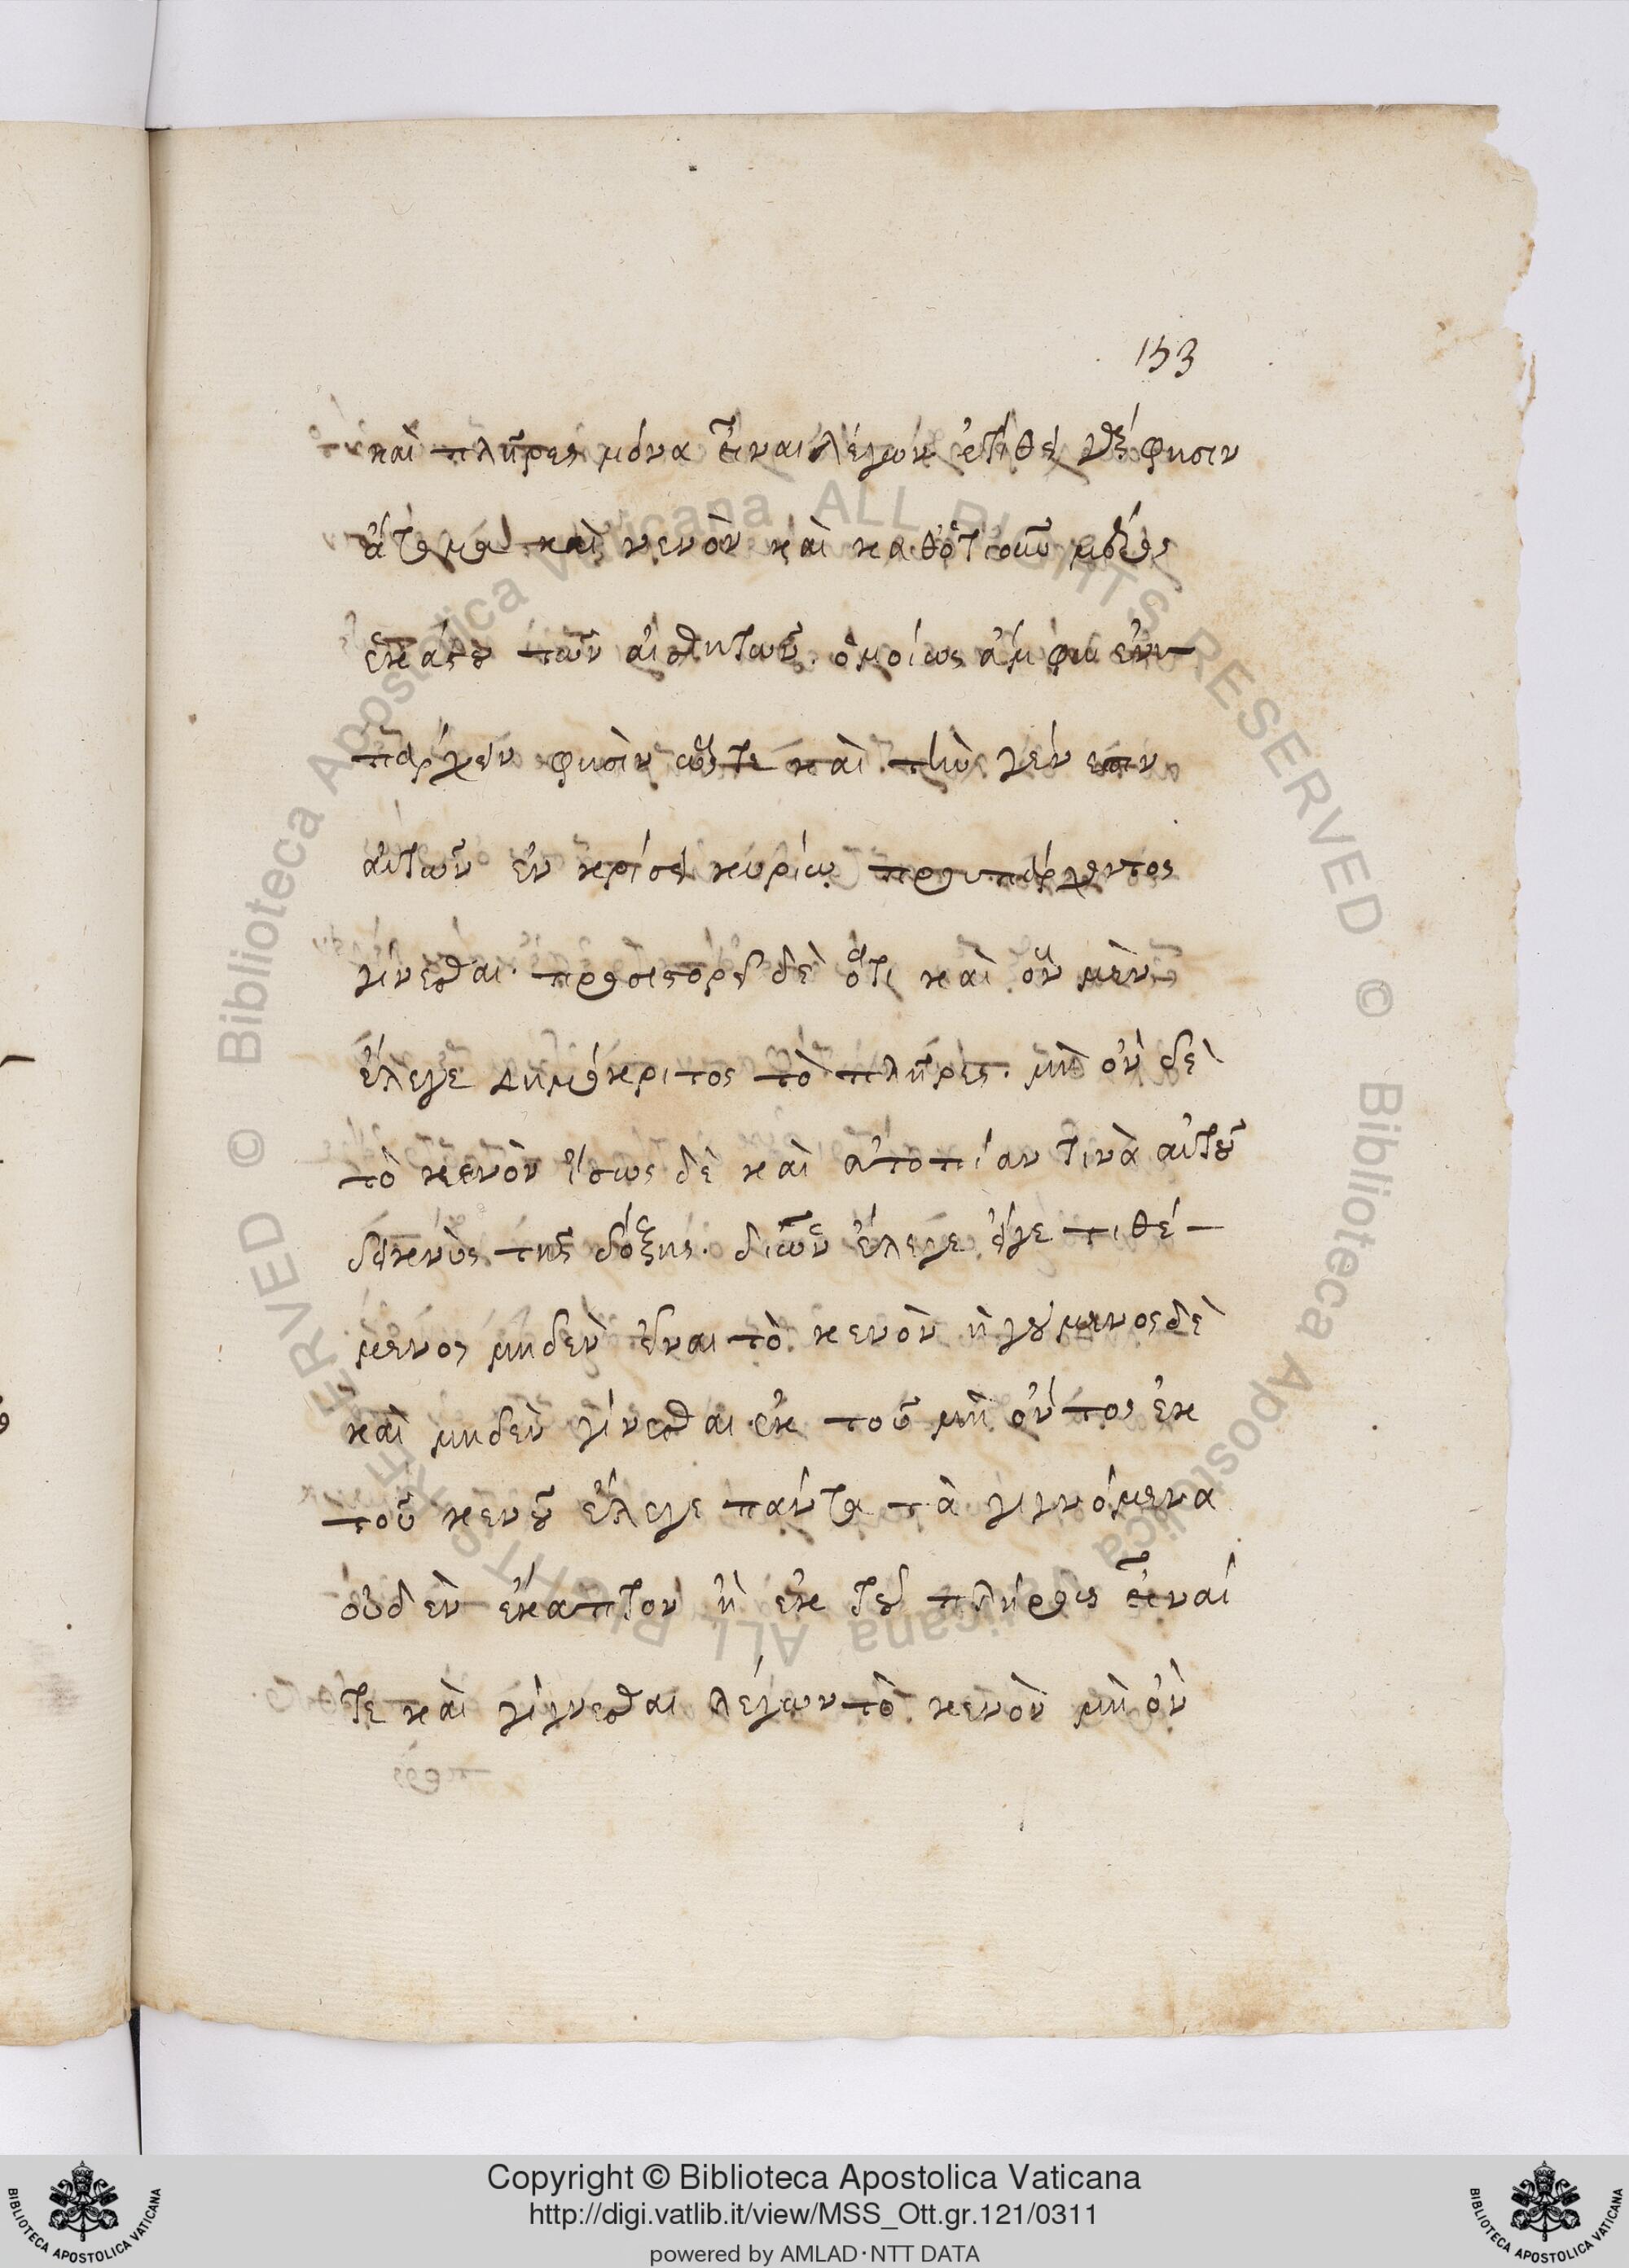 153
καὶ πλῆρες μόνα εἶναι λέγων ἐτίθει φησιν
ἄτομα καὶ κενὸν καὶ καθοτιοῦν μόριον
ἑκάστου τῶν αἰσθητῶν. ὁμοίως ἄμφω ἐνυ-
πάρχειν φησὶν ὥστε καὶ τὴν γένεσιν
αὐτῶν ἐν κρίσει κυρίῳ προυπάρχοντος
γίνεσθαι. προσιστορεῖ δὲ ὅτι καὶ ὂν μὲν
ἔλεγε Δημόκριτος τὸ πλῆρες. μὴ ὂν δὲ
τὸ κενὸν ἴσως δὲ καὶ ἀτοπίαν τινὰ αὐτοῦ
δεικνὺς τῆς δόξης. δι ὧν ἔλεγε εἴγε τιθέ-
μενος μηδὲν εἶναι τὸ κενὸν ἡγούμενος δὲ
καὶ μηδὲν γίνεσθαι ἐκ τοῦ μὴ ὄντος ἐκ
τοῦ κενοῦ ἔλεγε πάντα τὰ γιγνόμενα
οὐδὲν ἔκαττον ἢ ἐκ τοῦ πλήρους εἶναί
τε καὶ γίγνεσθαι λέγων τὸ κενὸν μὴ ὂν
Copyright © Biblioteca Apostolica Vaticana
http://digi.vatlib.it/view/MSS_Ott.gr.121/0311
powered by AMLAD·NTT DATA
BIBLIOTECA APOSTOLICA VATICANA
BIBLIOTECA APOSTOLICA VATICANA
© Biblioteca Apostolica Vaticana ALL RIGHTS RESERVED © Biblioteca Apostolica Vaticana ALL RIGHTS RESERVED